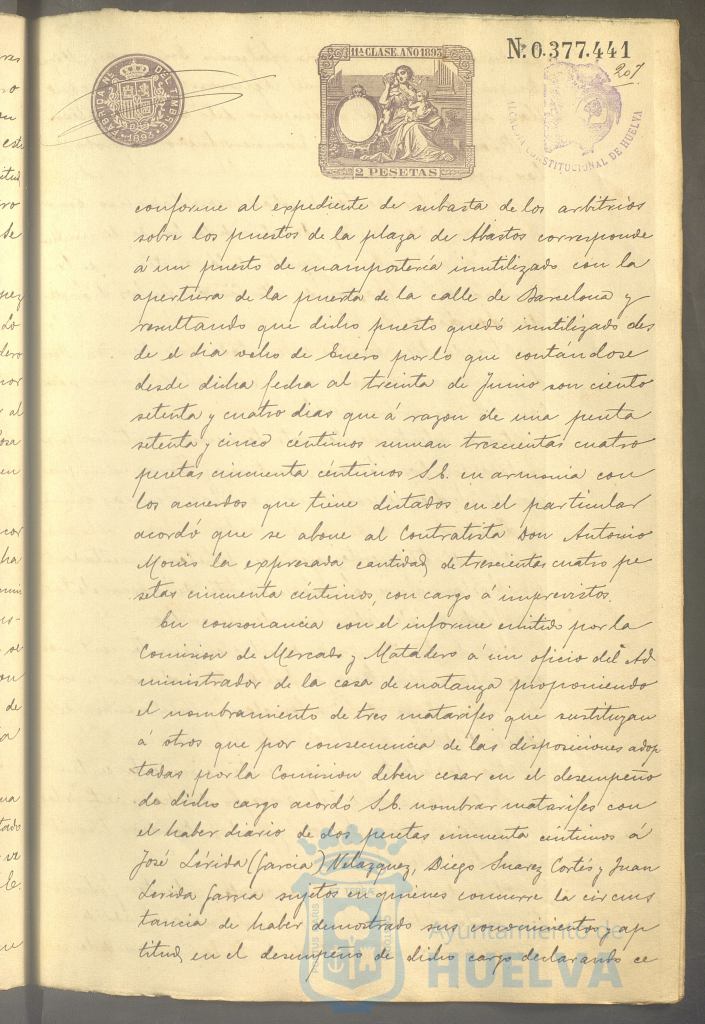 11ª CLASE. AÑO 1893
Nº. 0.377.441
207
FABRICA Nl. DEL TIMBRE
1893
2 PESETAS
ALCALDIA CONSTITUCIONAL DE HUELVA
conforme al expediente de subasta de los arbitrios
sobre los puestos de la plaza de Abastos corresponde
á un puesto de mampostería inutilizado con la
apertura de la puerta de la calle de Barcelona y
resultando que dicho puesto quedó inutilizado des
de el dia ocho de Enero por lo que contándose
desde dicha fecha al treinta de Junio son ciento
setenta y cuatro dias que á razon de una peseta
setenta y cinco céntimos suman trescientas cuatro
pesetas cincuenta céntimos S.E. en armonia con
los acuerdos que tiene dictados en el particular
acordó que se abone al Contratista Don Antonio
Moris la expresada cantidad de trescientas cuatro pe
setas cincuenta céntimos, con cargo á imprevistos.
En consonancia con el informe emitido por la
Comision de Mercado y Matadero á un oficio del Ad
ministrador de la casa de matanza proponiendo
el nombramiento de tres matarifes que sustituyan
á otros que por consecuencia de las disposiciones adop
tadas por la Comision deben cesar en el desempeño
de dicho cargo acordó S.E. nombrar matarifes con
el haber diario de dos pesetas cincuenta céntimos á
José Lérida (Garcia) Velazquez, Diego Suarez Cortés y Juan
Lerida Garcia sujetos en quienes concurre la circuns
tancia de haber demostrado sus conocimientos y ap
titud en el desempeño de dicho cargo declarando ce
Ayuntamiento de
HUELVA